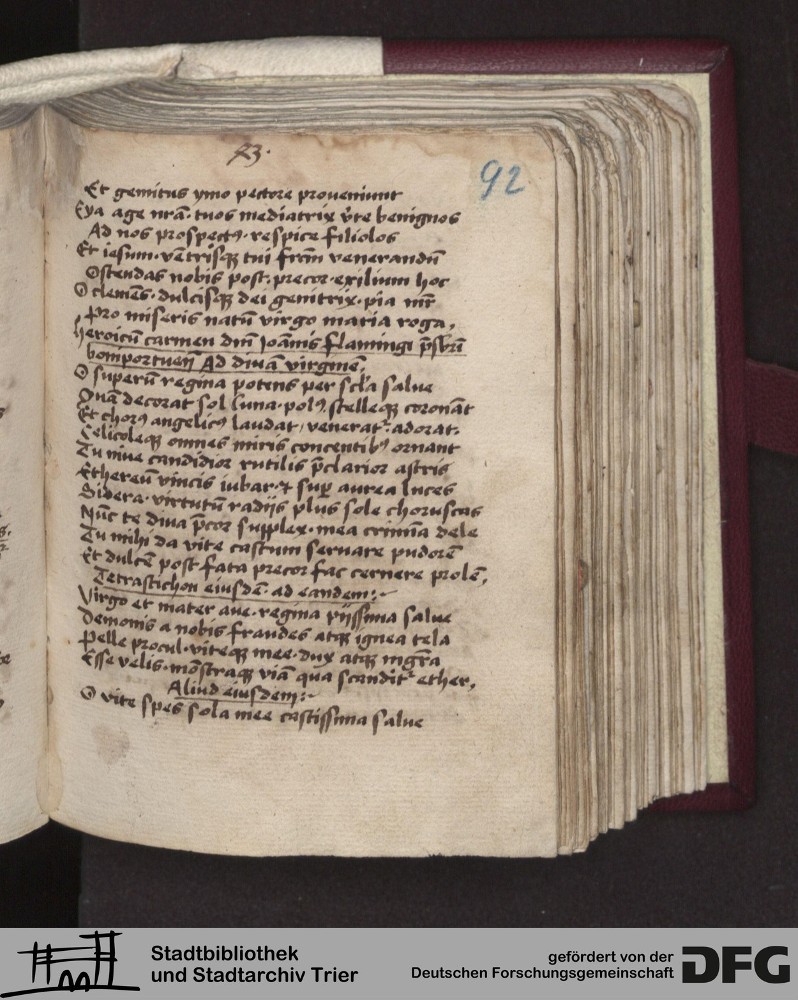 43.
92
Et gemitus ymo pectore proveniunt
Eya age nrā· tuos mediatrix v̄te benignos
Ad nos prospectꝰ· respice filiolos
Et iesum· vētrisqꝫ tui frēm venerandū
Ostendas nobis post· precor· exilium hoc
O clemēs· dulcisqꝫ dei genitrix· pia mr̄
Pro miseris natū virgo maria roga,
heroicū carmen dn̄i Joānis flamingi p̄sbrī
bomportuen̄ Ad divā virginē,
O superū regina potens per scl̄a salve
Quā decorat sol luna· polꝰ, stelleqꝫ coronāt
Et chorꝰ angelicꝰ laudat, venerat᷑· adorat·
Celicoleqꝫ omnes miris concentibꝰ ornant
Tu nive candidior rutilis p̄clarior astris
Ethereū vincis iubar· & suꝑ aurea luces
Sidera· virtutū radijs plus sole choruscas
Nūc te diva p̄cor supplex· mea crimīa dele
Tu mihi da vite castum servare pudorē
Et dulcē post fata precor fac cernere prolē,
Tetrastichon eiusdē· ad eandem:·
Virgo et mater ave· regina pijssima salve
Demonis a nobis fraudes atqꝫ ignea tela
Pelle procul· viteqꝫ mee· dux atqꝫ mgr̄a
Esse velis· mōstraqꝫ viā qua scandit᷑ ether,
Aliud eiusdem:·
O vite spes sola mee castissima salve
Stadtbibliothek
und Stadtarchiv Trier
gefördert von der
Deutschen Forschungsgemeinschaft
DFG